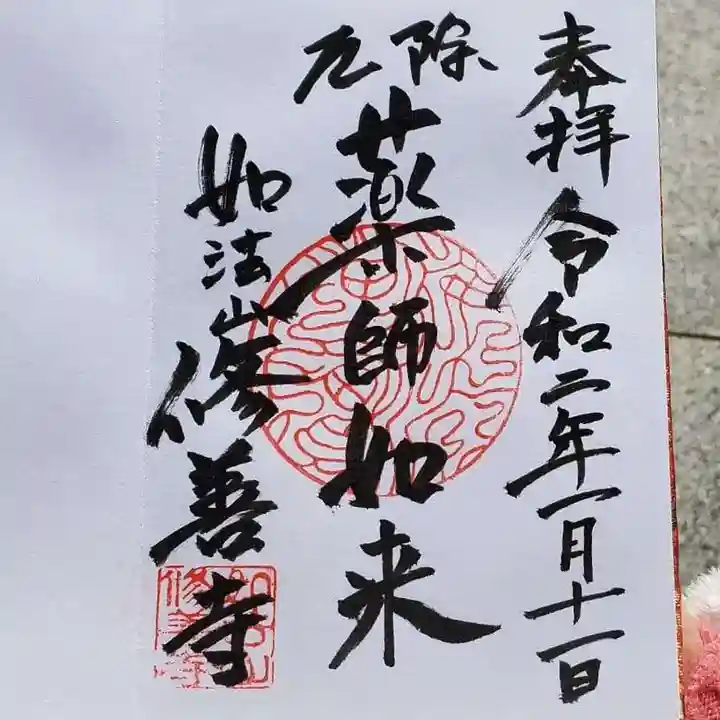 奉拝 令和二年一月十一日
厄除
薬師如来
如法山 修善寺